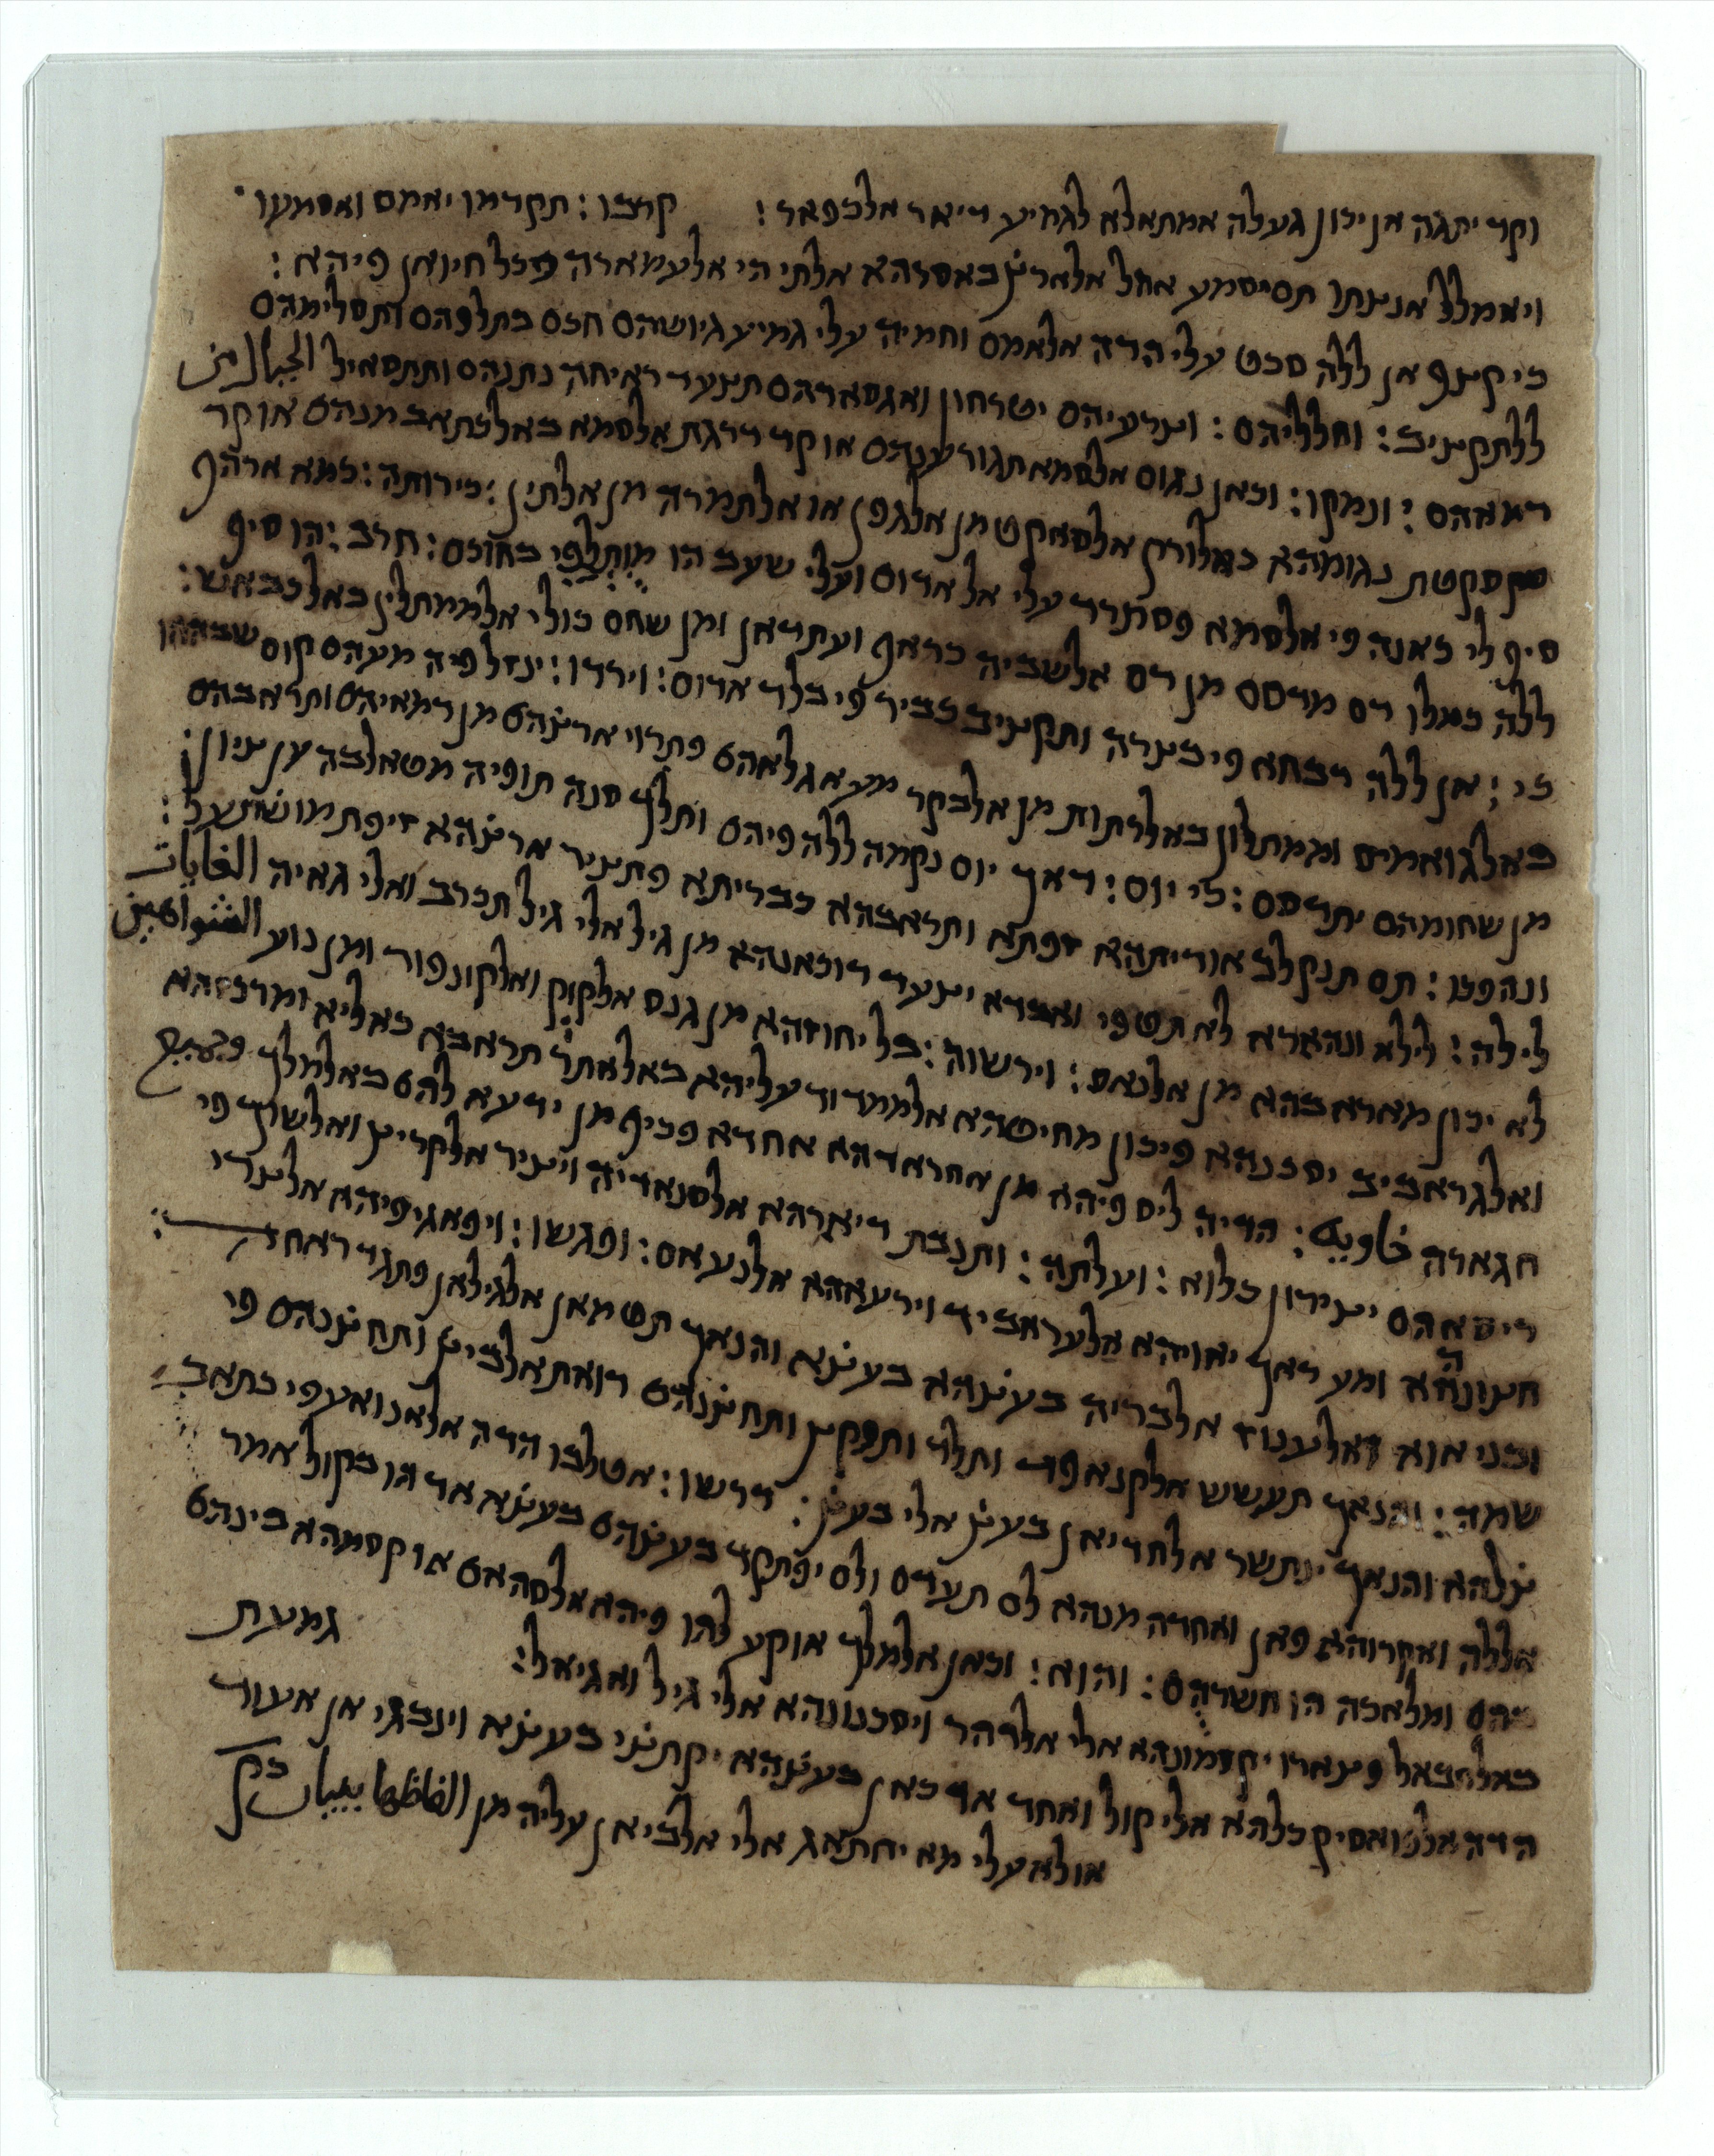 וקד יתגה אן יכון געלה אמתאלא לגמיע דיאר אלכפאר : קרבו : תקדמו יאמם ואסמעו
ויאמלל אנצתו תם יסמע אהל אלארץ באסרהא אלתי הי אלעמארה וכל חיואן פיהא :
כי קצף אן ללה סכט עלי הדה אלאמם וחמיה עלי גמיע גיושהם חכם בתלפהם ותסלימהם
ללתקציב : וחלליהם : וצרעיהם יטרחון ואגסאדהם תצעד ראיחה נתנהם ותתסאיל الجبال من
דמאהם : ונמקו : וכאן נגום אלסמא תגור ענהם או קד דרגת אלסמא כאלכתאב מנהם או קד
סקטת נגומהא כאלורק אלסאקט מן אלגפן או אלתמרה מן אלתין : כי רותה : כמא ארהף
סיפי לי כאנה פי אלסמא פסתרד עלי אל אדום ועלי שעב הו מותלפי בחוכם : חרב : הו סיף
ללה כמלו דם מדסם מן דם אלשביה כראף ועתדאן ומן שחם כולי אלממתלין כאלכבאש :
כי : אן ללה דבחא פי בצרה ותקציב כביר פי בלד אדום : וירדו : ינזל פיה מעהם קום שבההו
באלגואמיס וממתלון באלרתות מן אלבקר מע אגלאהם פתרוי ארצהם מן דמאיהם ותראבהם
מן שחומהם יתדסם : כי יום : דאך יום נקמה ללה פיהם ותלך סנה תופיה מטאלבה ען ציון :
ונהפכו : תם תנקלב אודיתהא זפתא ותראבהא כבריתא פתציר ארצהא זיפת מושתעל :
לילה : לילא ונהארא לא תטפי ואבדא יצעד דוכאנהא מן גיל אלי גיל תכרב ואלי גאיה الغايات
לא יכון מאר אבהא מן אלנאס : וירשוה : בל יחוזהא מן גנס אלקוק ואלקונפוד ומן נוע الشواهين
ואלגראביב יסכנהא פיכון מחיטהא אלממדוד עליהא כאלאתר תראבא כאליא ומרכזהא
חגארה خاوية : חריה ליס פיהא מן אחראדהא אחדא פכיף מן ידעא להם באלמלך
ריסאהם יצירון כלוא : ועלתה : ותנבת דיארהא אלסנאדיה ויציר אלקריץ ואלשוך פי
חצונהא ומע דאך יאויהא אלעראביד וירעאהא אלנעאם : ופגשו : ויפאגי פיהא אלצדי
ובני אוא ואלענוז אלבריה בעצהא בעצא והנאך תטמאן אלגילאן פתגד ראחה
שמה : והנאך תעשש אלקנאפד ותלד ותפקץ ותחצנהם דואת אלביץ ותחצנהם פי
צלהא והנאך ינתשר אלחדיאן בעץ אלי בעץ : דרשו : אטלבו הדה אלאנואע פי כתאב
אללה ואקרוהא פאן ואחדה מנהא לם תעדם ולם יפתקד בעצהם בעצא אד הו בקול אמר
בהם ומלאכה הו חשרהם : והוא : וכאן אלמלך אוקע להו פיהא אלסהאם או קסמהא בינהם
באלחבאל פצארו יקדמונהא אלי אלדהר ויסכנונהא אלי גיל ואגיאל : גמעת
הדה אלפואסיק כלהא אלי קול ואחד אד כאן בעצהא יקתצי בעצא וינבגי אן אעוד
אולא עלי מא יחתאג אלי אלביאן עליה מן الفاظها ببيان